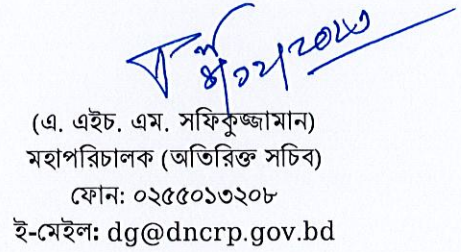 (এ. এইচ. এম. সফিকুজ্জামান)
মহাপরিচালক (অতিরিক্ত সচিব)
ফোন: ০২৫৫০১৩২০৮
ই-মেইল: dg@dncrp.gov.bd